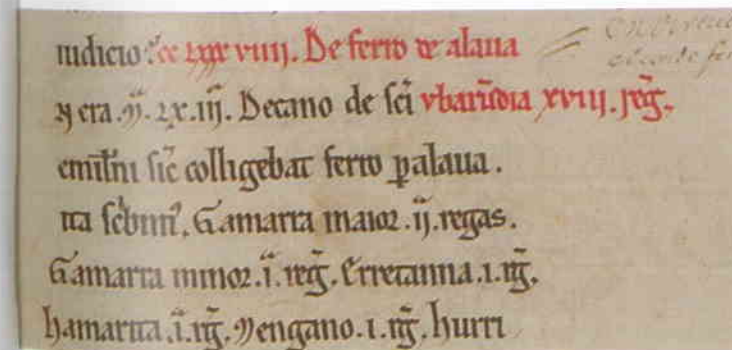 iudicio. De ferro de alaua
era. m̃. lx. iii. Decano de sc̃i vbarũdia xviii. reg̃.
emilĩni sic̃ colligebat ferro ꝑ alaua.
ita sc̃bim᷒. Gamarra maior .ii. regas.
Gamarra minor .i. reg̃. Erretanna .i. rg̃.
hamarita .i. rg̃. Mengano .i. rg̃. hurri